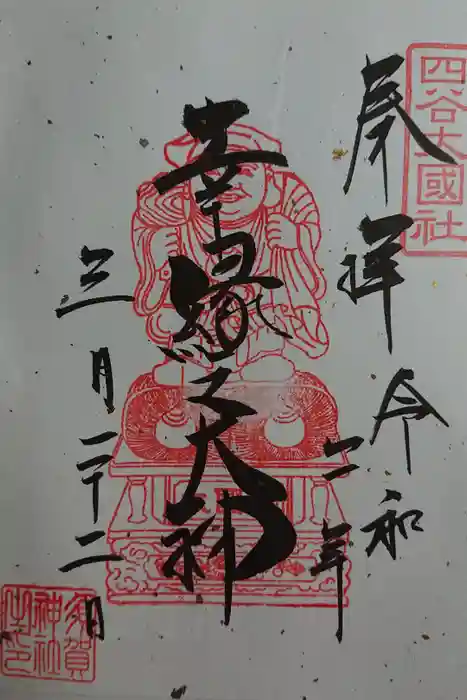 四谷大國社
奉拝
令和
二年
幸縁之大神
三月二十二日
須賀
神社